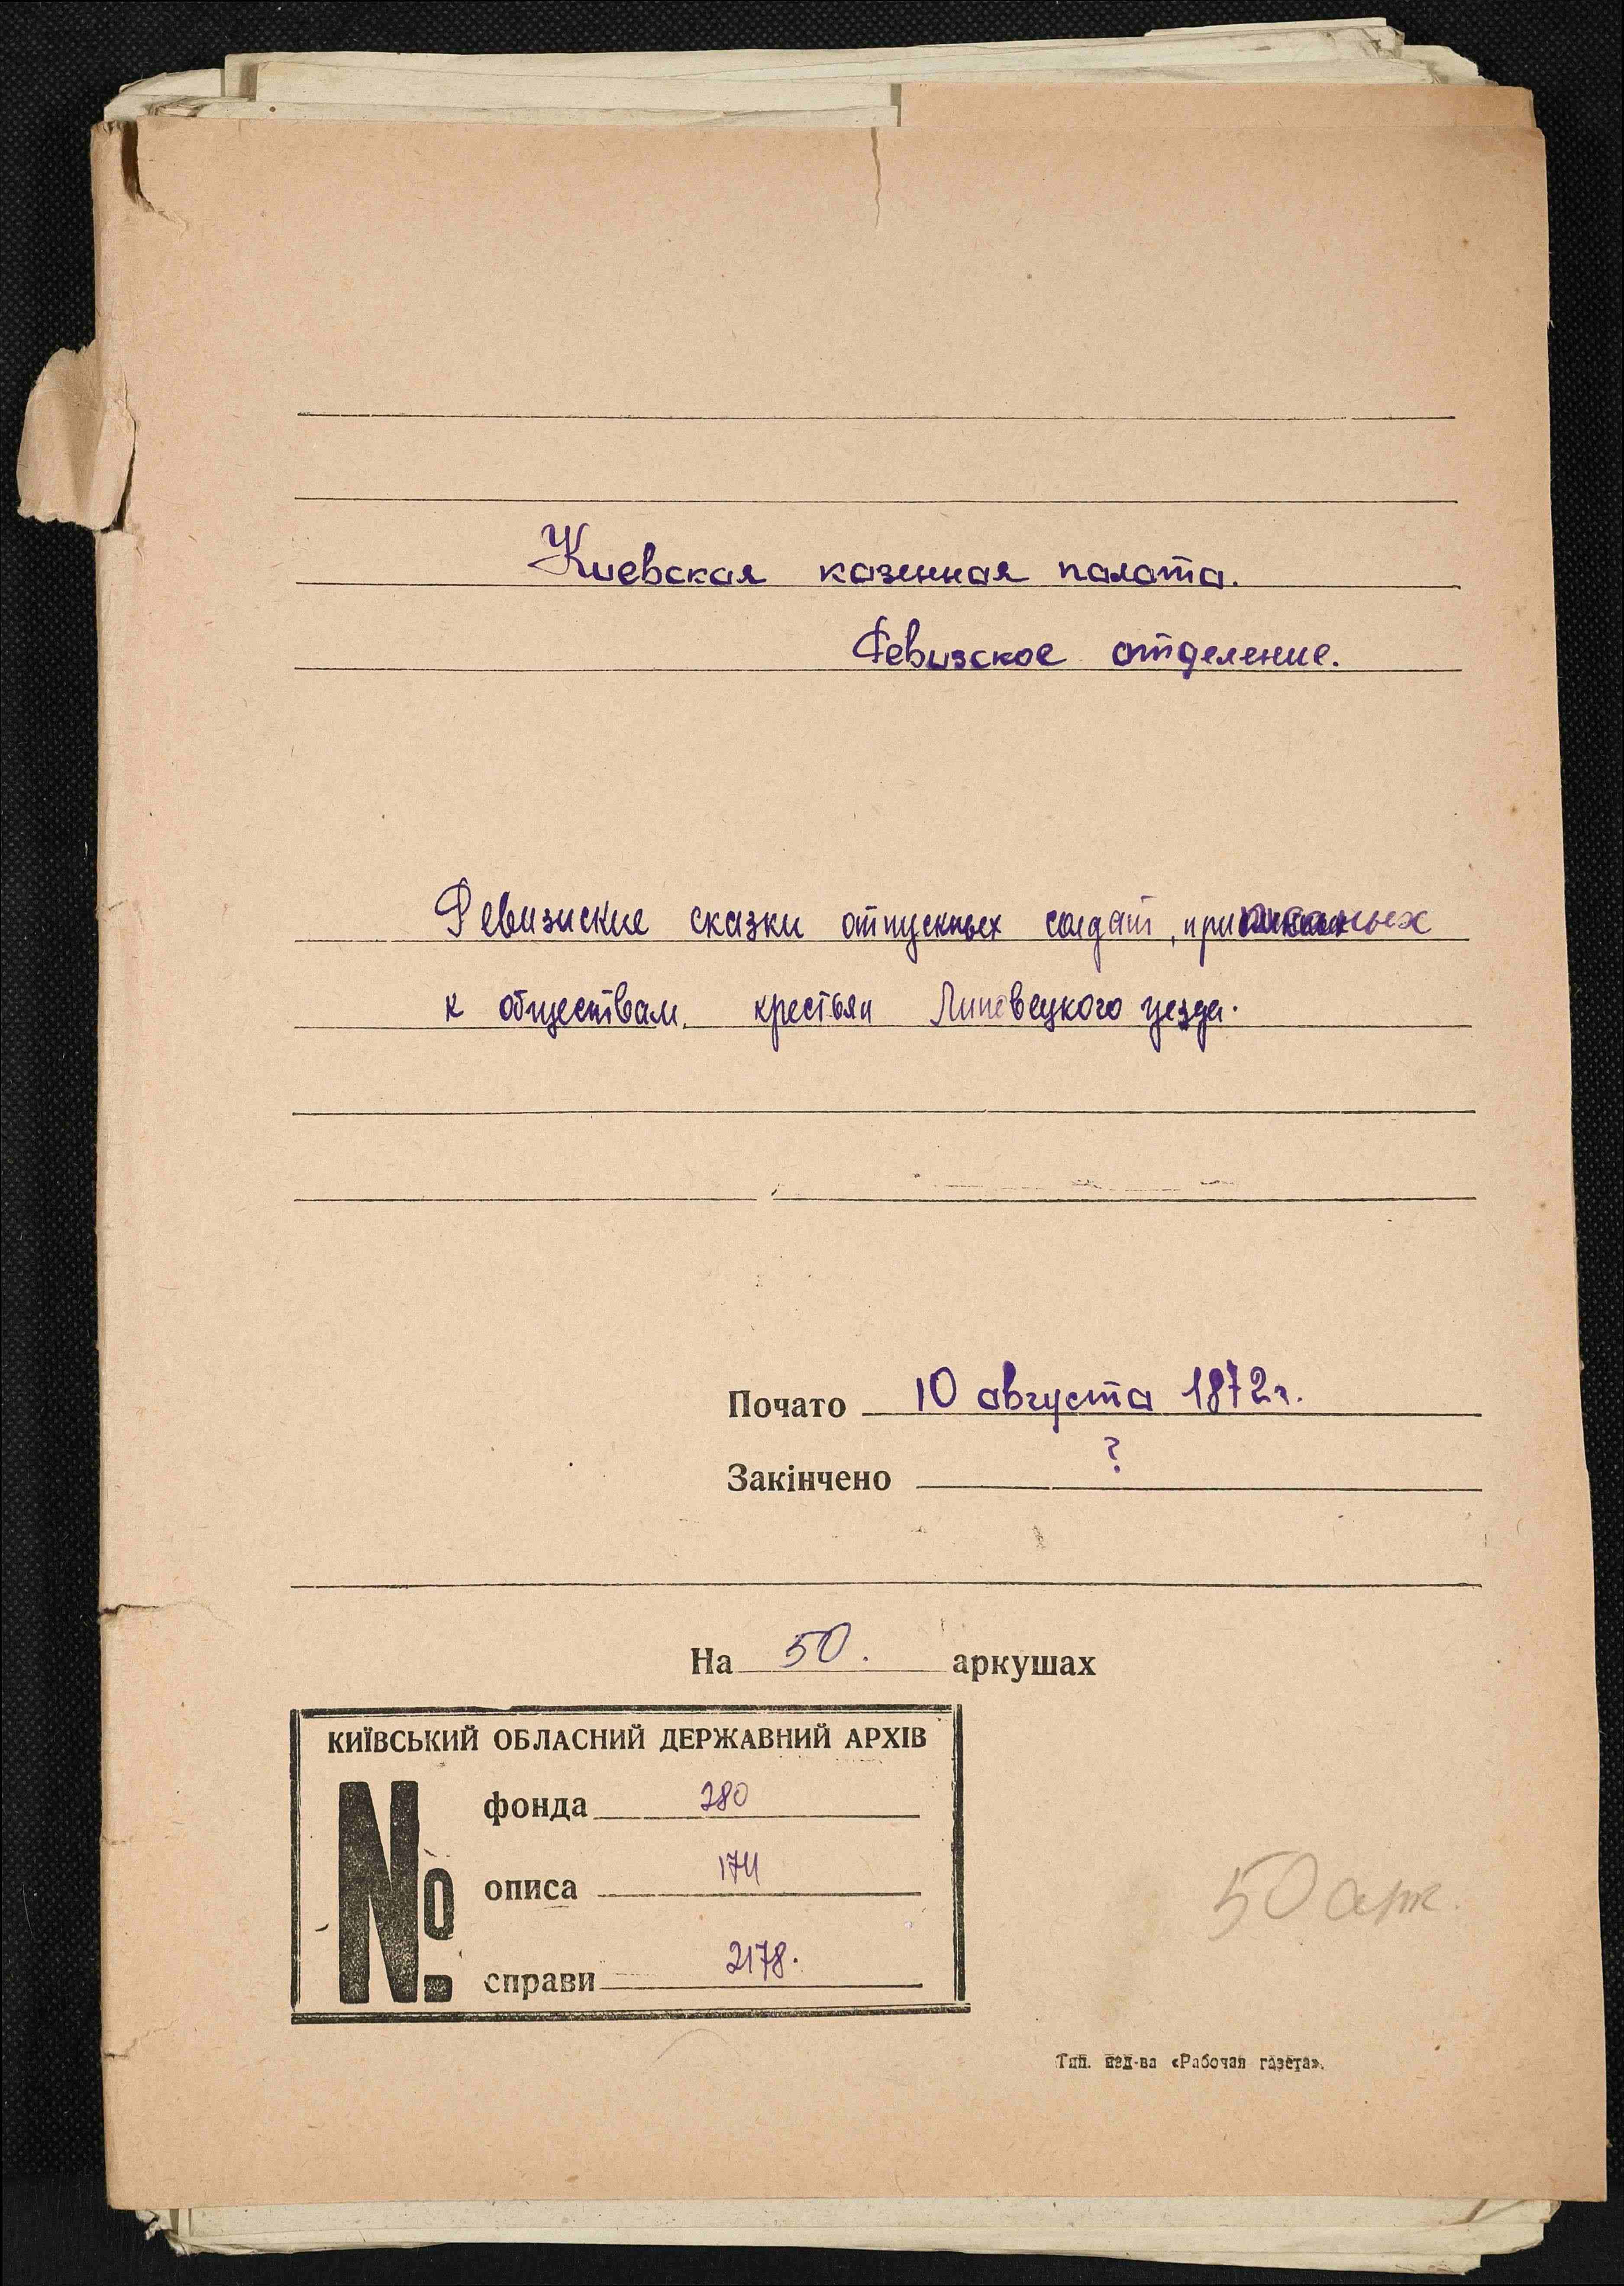 Киевская казенная палата.
Ревизское отделение.
Ревизиские сказки отпускных солдат, приписаных
к обществам крестьян Липовецкого уезда.
Почато 10 августа 1872 г.
Закінчено ?
На 50. аркушах
КИЇВСЬКИЙ ОБЛАСНИЙ ДЕРЖАВНИЙ АРХІВ
№
фонда 280
описа 174
справи 2178.
50 арк.
Тип. изд-ва «Рабочая газета».